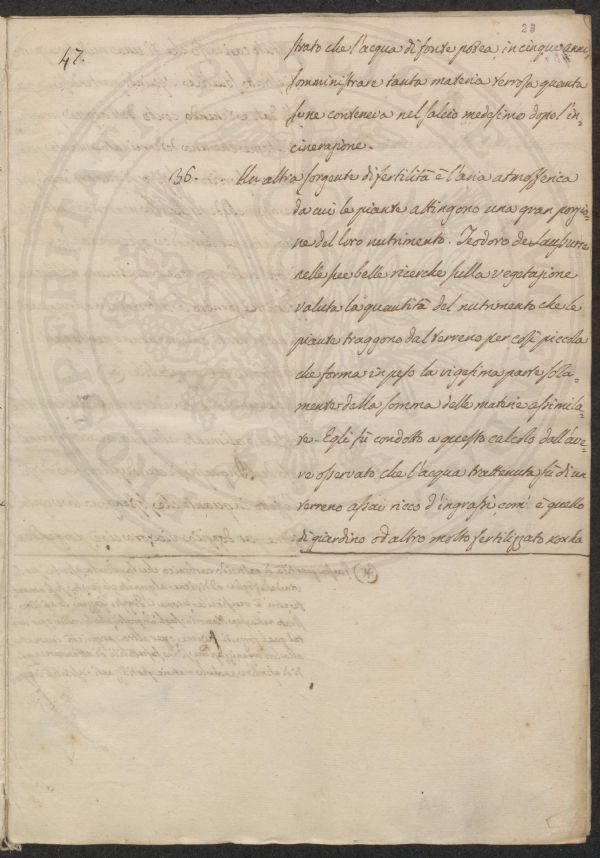 23
47.
strato che l'acqua di fonte potea, in cinque anni,
somministrare tanta materia terrosa quanta
se ne conteneva nel salcio medesimo dopo l'in-
cinerazione.
136. Un altra sorgente di fertilità è l'aria atmosferica
da cui le piante attingono una gran porzio-
ne del loro nutrimento. Teodoro de Saussurre
nelle sue belle ricerche sulla vegetazione
valuta la quantità del nutrimento che le
piante traggono dal terreno per così piccola
che forma in peso la vigesima parte sola-
mente della somma delle materie assimila-
te. Egli fù condotto a questo calcolo dall'ave-
re osservato che l'acqua trattenuta sù di un
terreno assai ricco d'ingrassi, com' è quello
di giardino od altro molto fertilizzato non ha